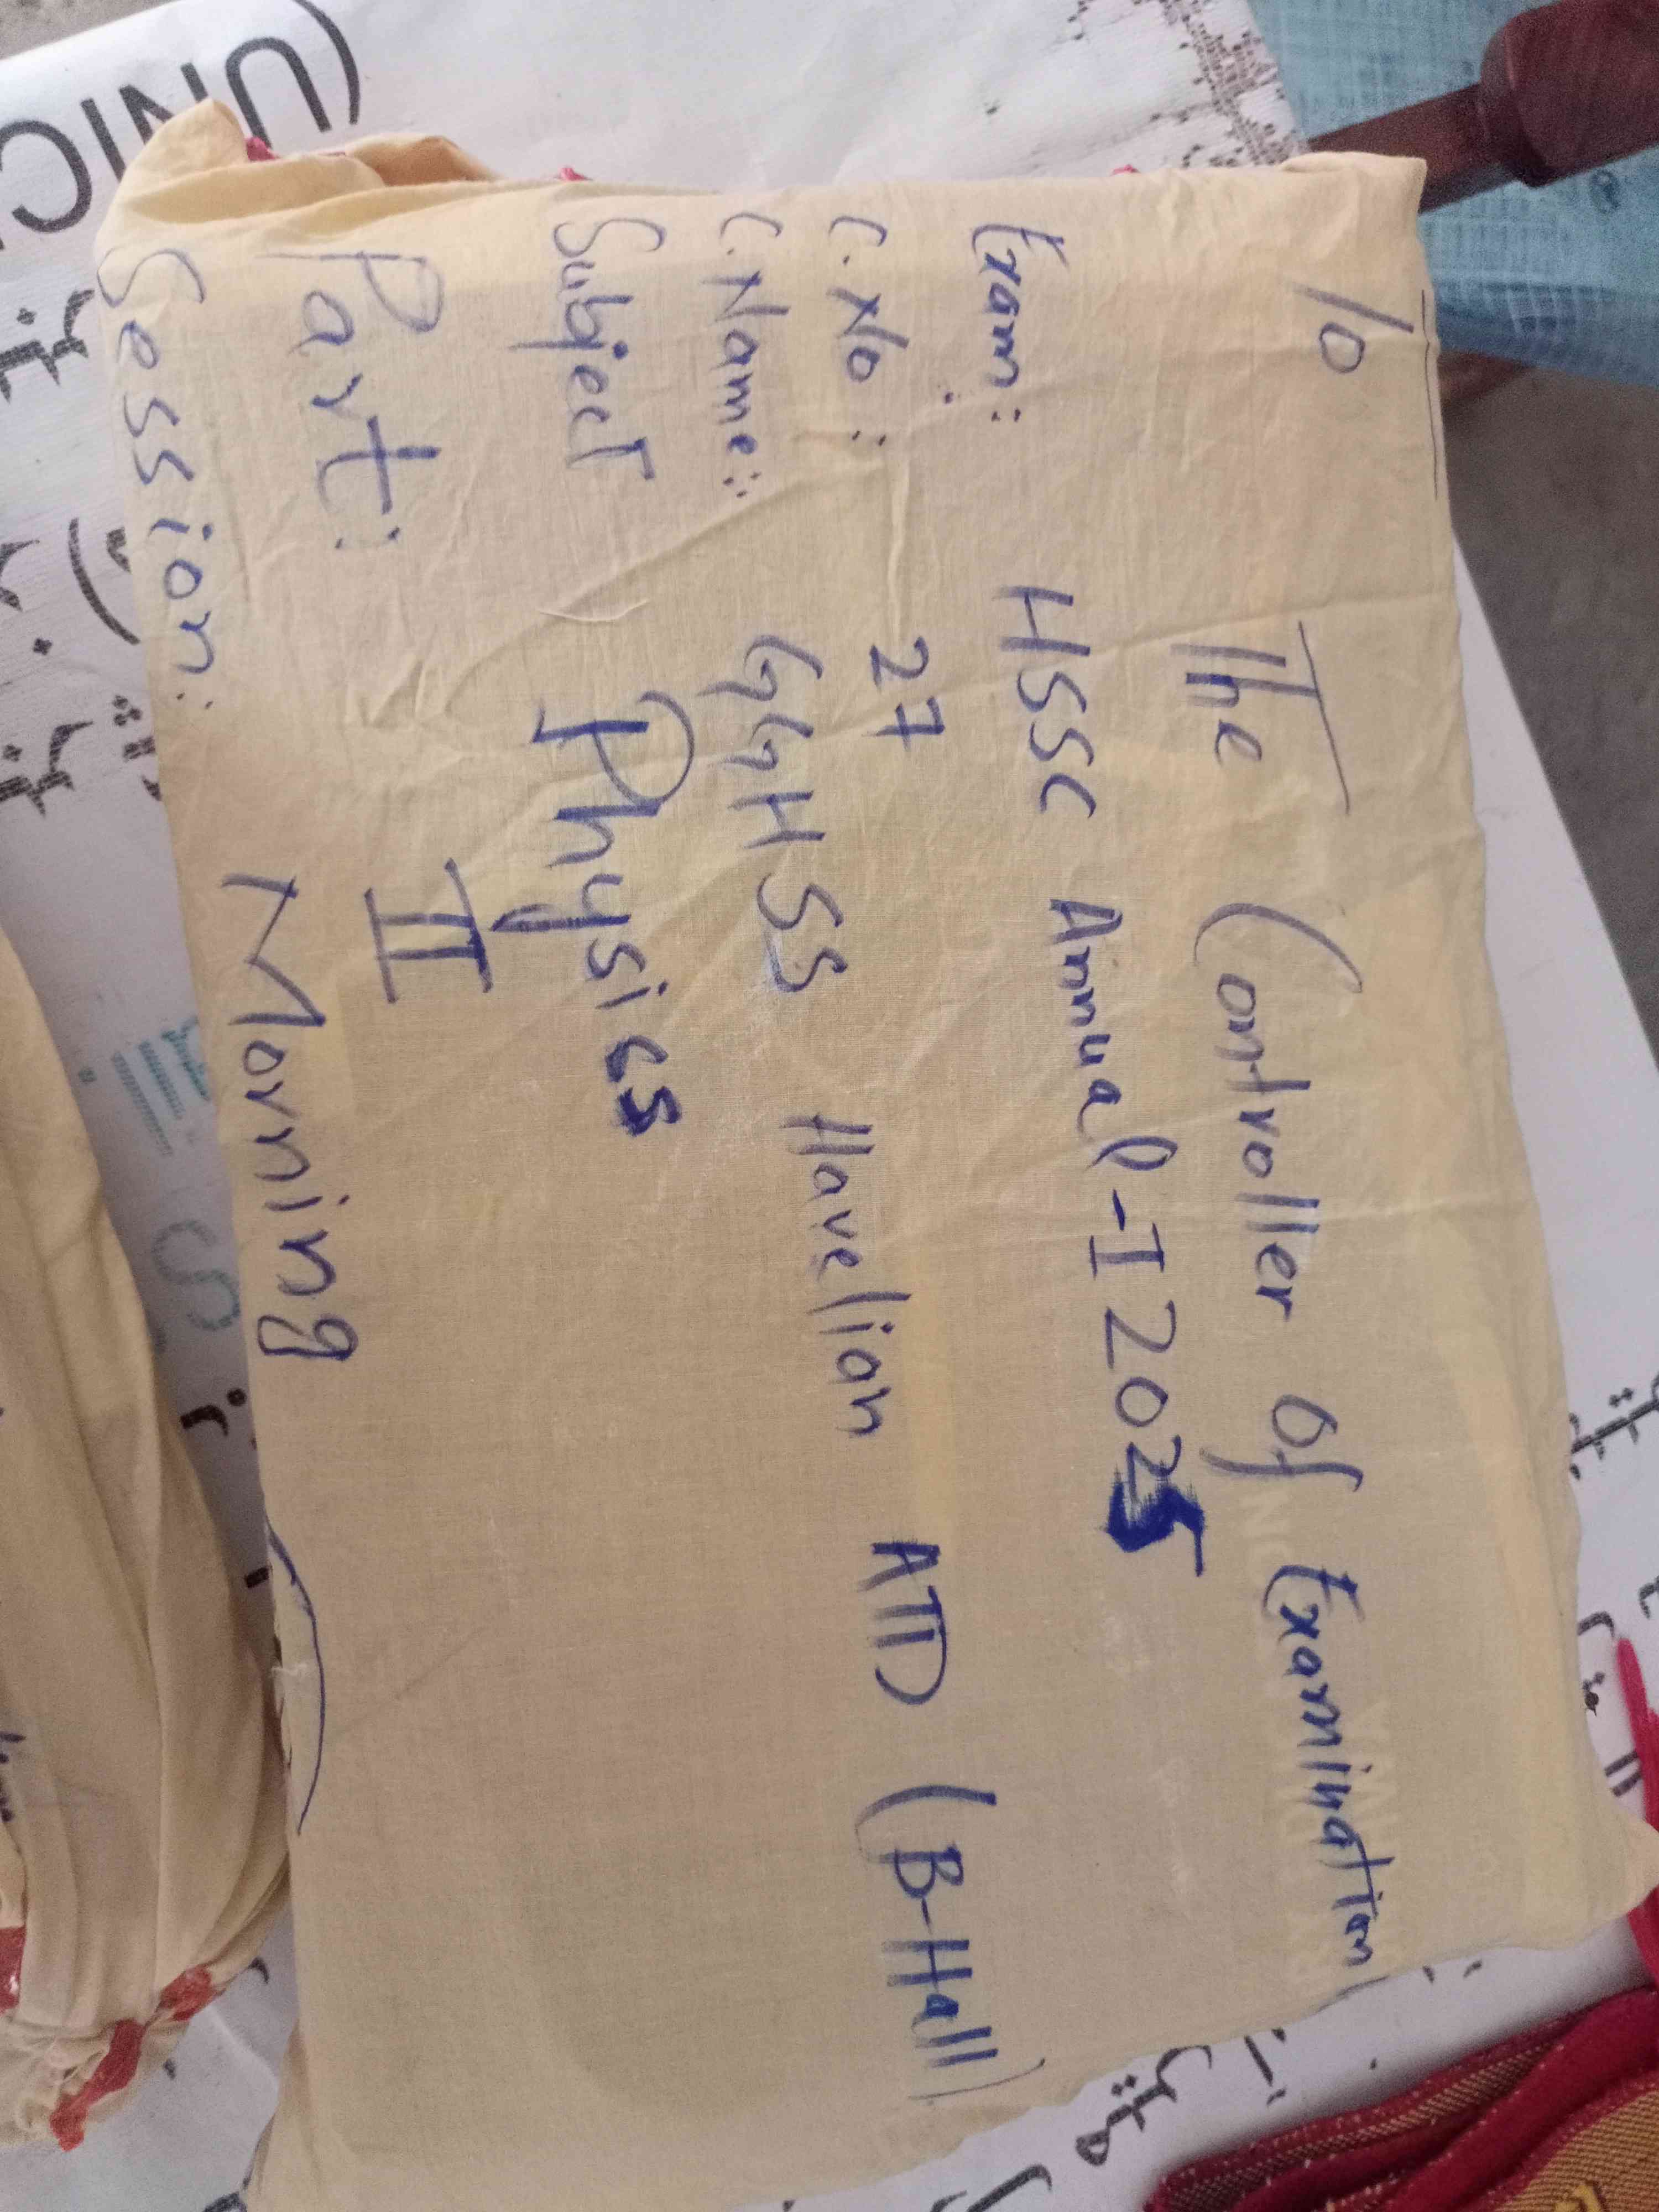 To
The Controller of Examination
Exam: HSSC Annual-I 2025
C.No: 27
C.Name: GGHSS Havelian ATD (B-Hall)
Subject Physics
Part: II
Session: Morning
(UNIC